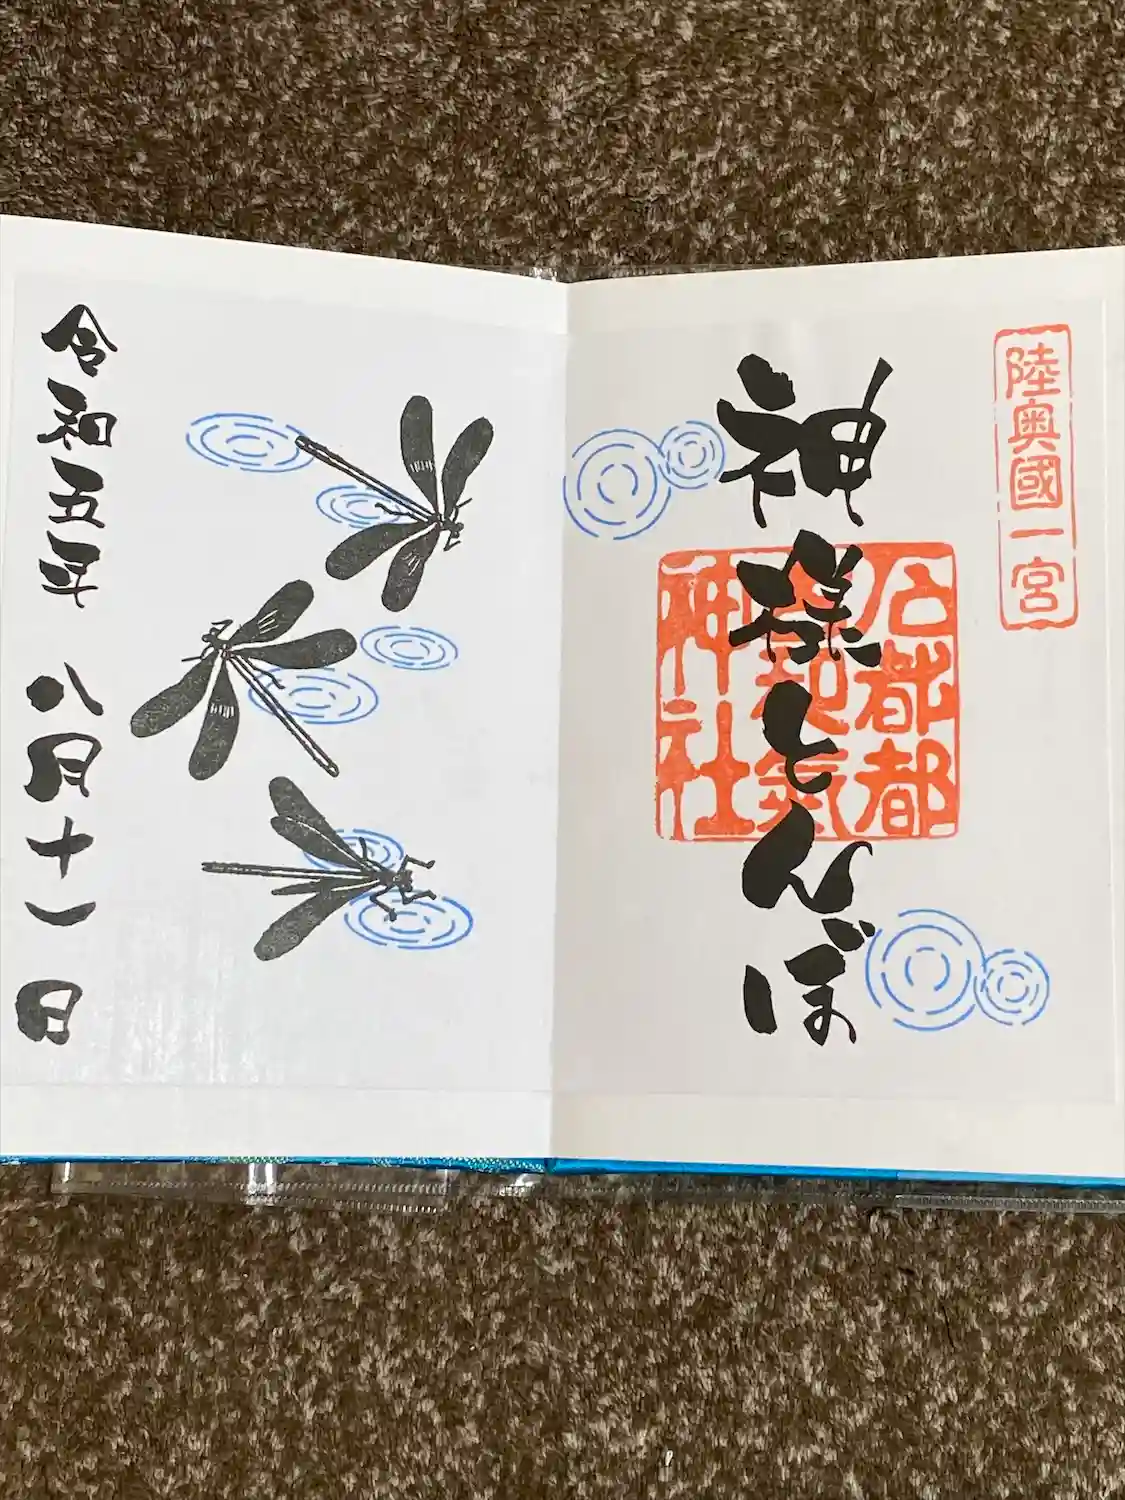 陸奥國一宮
神様とんぼ
石都都
古和氣
神社
令和五年 八月十一日